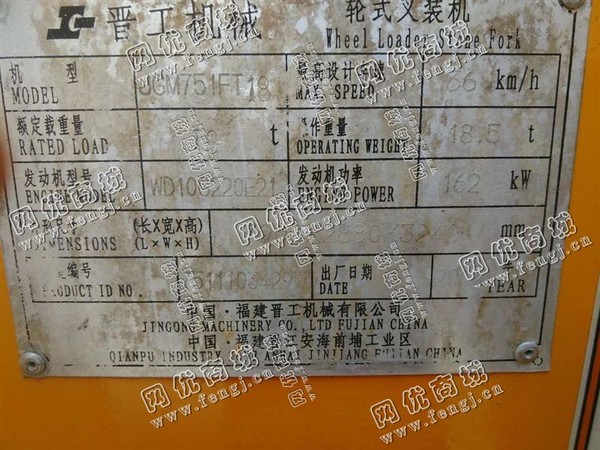 晋工机械 轮式叉装机
Wheel Loader Stone Fork
机 型 JGM751FT18 最高设计车速 36 km/h
MODEL MAX SPEED
额定载重量 t 操作重量 18.5 t
RATED LOAD OPERATING WEIGHT
发动机型号 WD10G220E21 发动机功率 162 kW
ENGINE MODEL ENGINE POWER
(长X宽X高) mm
DIMENSIONS (L×W×H)
编号 出厂日期
PRODUCT ID NO. DATE YEAR
中国·福建晋工机械有限公司
JINGONG MACHINERY CO., LTD FUJIAN CHINA
中国·福建晋江安海前埔工业区
QIANPU INDUSTRY ANHAI JINJIANG FUJIAN CHINA
网优商城
www.fengj.cn